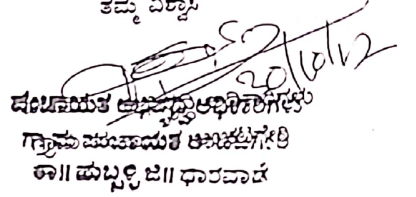 ತಮ್ಮ ವಿಶ್ವಾಸಿ
20/10/12
ಪಂಚಾಯತ ಅಭಿವೃದ್ಧಿ ಅಧಿಕಾರಿಗಳು
ಗ್ರಾಮ ಪಂಚಾಯತ ಅಂಚಟಗೇರಿ
ತಾ|| ಹುಬ್ಬಳ್ಳಿ ಜಿ|| ಧಾರವಾಡ